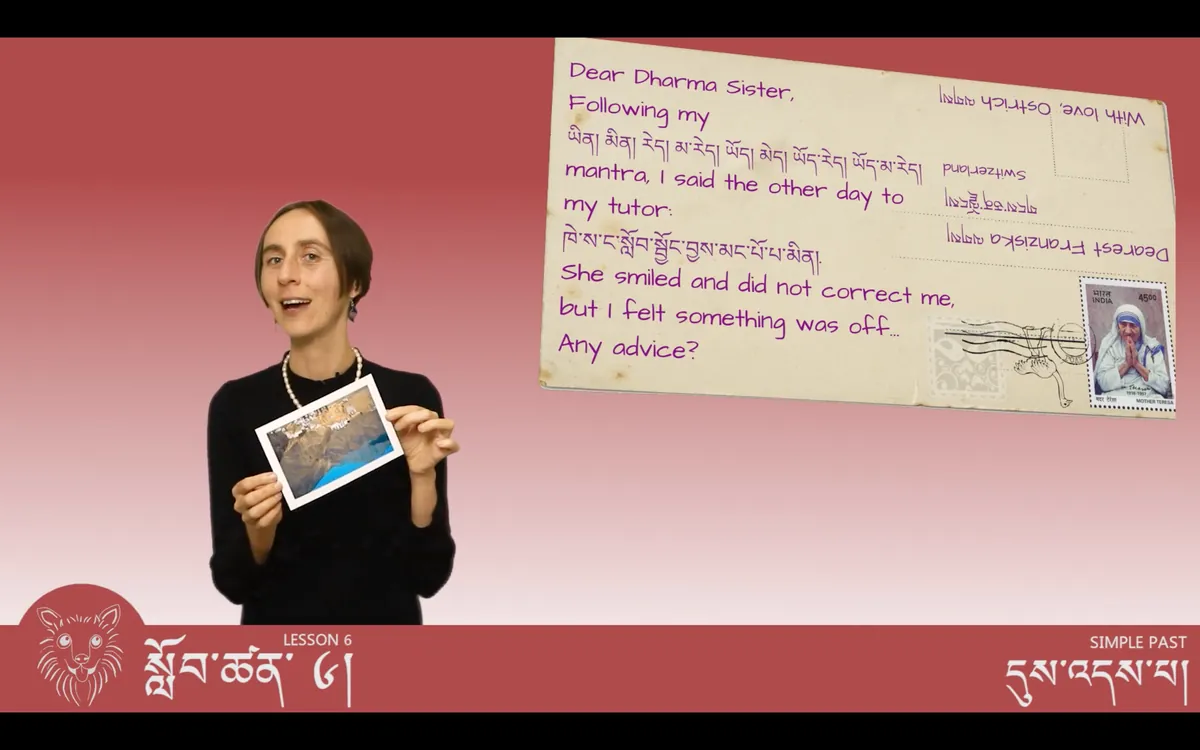 Dear Dharma Sister,
Following my
ཡིན། མིན། རེད། མ་རེད། ཡོད། མེད། ཡོད་རེད། ཡོད་མ་རེད།
mantra, I said the other day to
my tutor:
ཁེ་ས་ང་སློབ་སྦྱོང་བྱས་མང་པོ་པ་མིན།
She smiled and did not correct me,
but I felt something was off...
Any advice?
Dearest Franziska ལགས།
Switzerland
With love, Ostrich ལགས།
भारत
INDIA
4500
MOTHER TERESA
LESSON 6
སློབ་ཚན་ ༦།
SIMPLE PAST
དུས་འདས་པ།